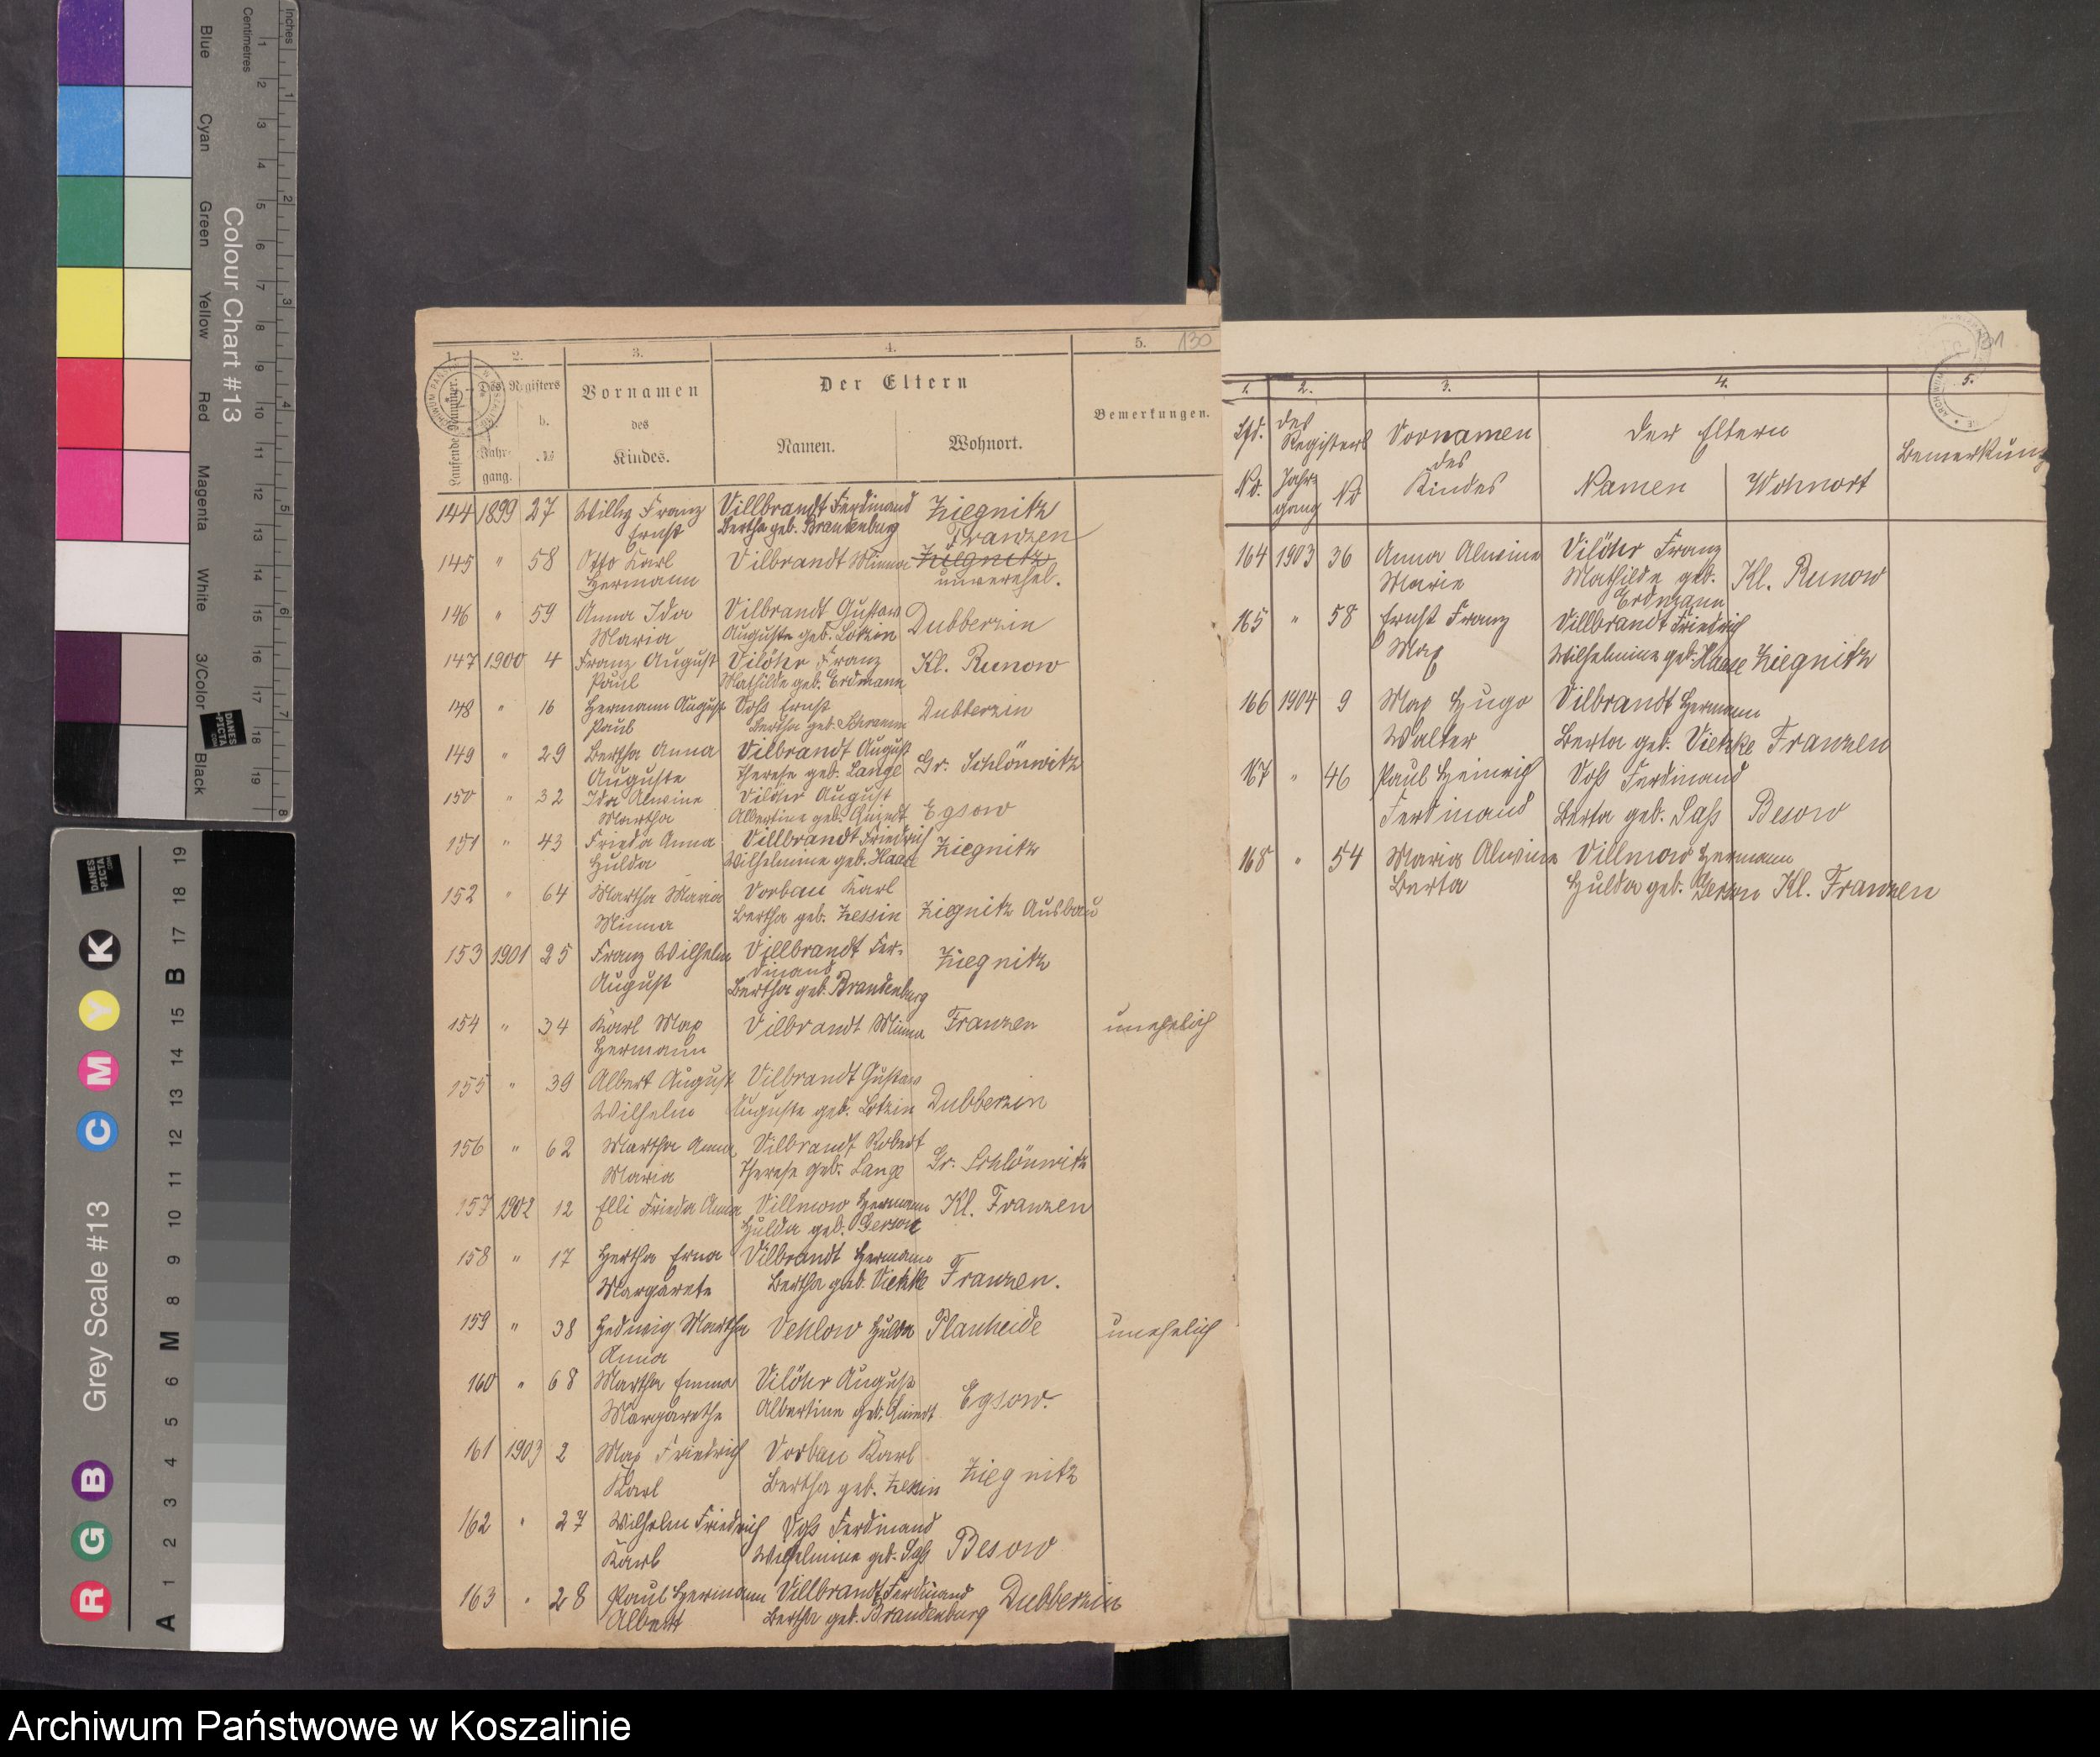 Blue Cyan Green Yellow Red Magenta White 3/Color Black
Colour Chart #13
Centimetres
Inches
DANES-PICTA.COM
Grey Scale #13
R G B C M Y K
A 1 2 3 4 5 6 M 8 9 10 11 12 13 14 15 B 17 18 19
1. 2. 3. 4. 5. 130
Laufende Nummer.
Des Registers
Vornamen
Der Eltern
b.
des
Bemerkungen.
Jahrgang.
№
Kindes.
Namen.
Wohnort.
144 1899 27 Willy Franz Villbrandt Ferdinand Ziegnitz
Ernst Bertha geb. Brandenburg
Franzen
145 " 58 Otto Karl Vilbrandt Minna Ziegnitz
Hermann unverehel.
146 " 59 Anna Ida Vilbrandt Gustav Dubberzin
Maria Auguste geb. Lötzin
147 1900 4 Franz August Vilöhr Franz Kl. Runow
Paul Mathilde geb. Erdmann
148 " 16 Hermann August Voß Ernst Dubberzin
Paul Bertha geb. Schramm
149 " 29 Bertha Anna Vilbrandt August Gr. Schlönwitz
Auguste Therese geb. Lange
150 " 32 Ida Alwine Vilöhr August Egsow
Martha Albertine geb. Quandt
151 " 43 Frieda Anna Villbrandt Friedrich Ziegnitz
Hulda Wilhelmine geb. Haase
152 " 64 Martha Maria Vorbau Karl
Minna Bertha geb. Zessin Ziegnitz Ausbau
153 1901 25 Franz Wilhelm Villbrandt Fer- Ziegnitz
dinand
August Bertha geb. Brandenburg
154 " 34 Karl Max Vilbrandt Minna Franzen unehelich
Hermann
155 " 39 Albert August Vilbrandt Gustav
Wilhelm Auguste geb. Lötzin Dubberzin
156 " 62 Martha Anna Vilbrandt Robert
Maria Therese geb. Lange Gr. Schlönwitz
157 1902 12 Elli Frieda Anna Villmow Hermann Kl. Franzen
Hulda geb. Gerson
158 " 17 Hertha Erna Vilbrandt Hermann
Margarete Bertha geb. Vietzke Franzen.
159 " 38 Hedwig Martha Vehlow Hulda Planheide unehelich
Anna
160 " 68 Martha Emma Vilöhr August
Margarethe Albertine geb. Quandt Egsow.
161 1903 2 Max Friedrich Vorbau Karl
Karl Bertha geb. Zessin Ziegnitz
162 " 27 Wilhelm Friedrich Voß Ferdinand
Karl Wilhelmine geb. Saß Besow
163 " 28 Paul Hermann Villbrandt Ferdinand Dubberzin
Albert Bertha geb. Brandenburg
131
1. 2. 3. 4. 5.
Lfd. des Registers Vornamen der Eltern
des Bemerkung
No. Jahrgang No Kindes Namen Wohnort
164 1903 36 Anna Alwine Vilöhr Franz
Marie Mathilde geb. Kl. Runow
Erdmann
165 " 58 Ernst Franz Villbrandt Friedrich
Max Wilhelmine geb. Haase Ziegnitz
166 1904 9 Max Hugo Vilbrandt Hermann
Walter Berta geb. Vietzke Franzen
167 " 46 Paul Heinrich Voß Ferdinand
Ferdinand Berta geb. Saß Besow
168 " 54 Maria Alwine Villmow Hermann
Berta Hulda geb. Gerson Kl. Franzen
Archiwum Państwowe w Koszalinie